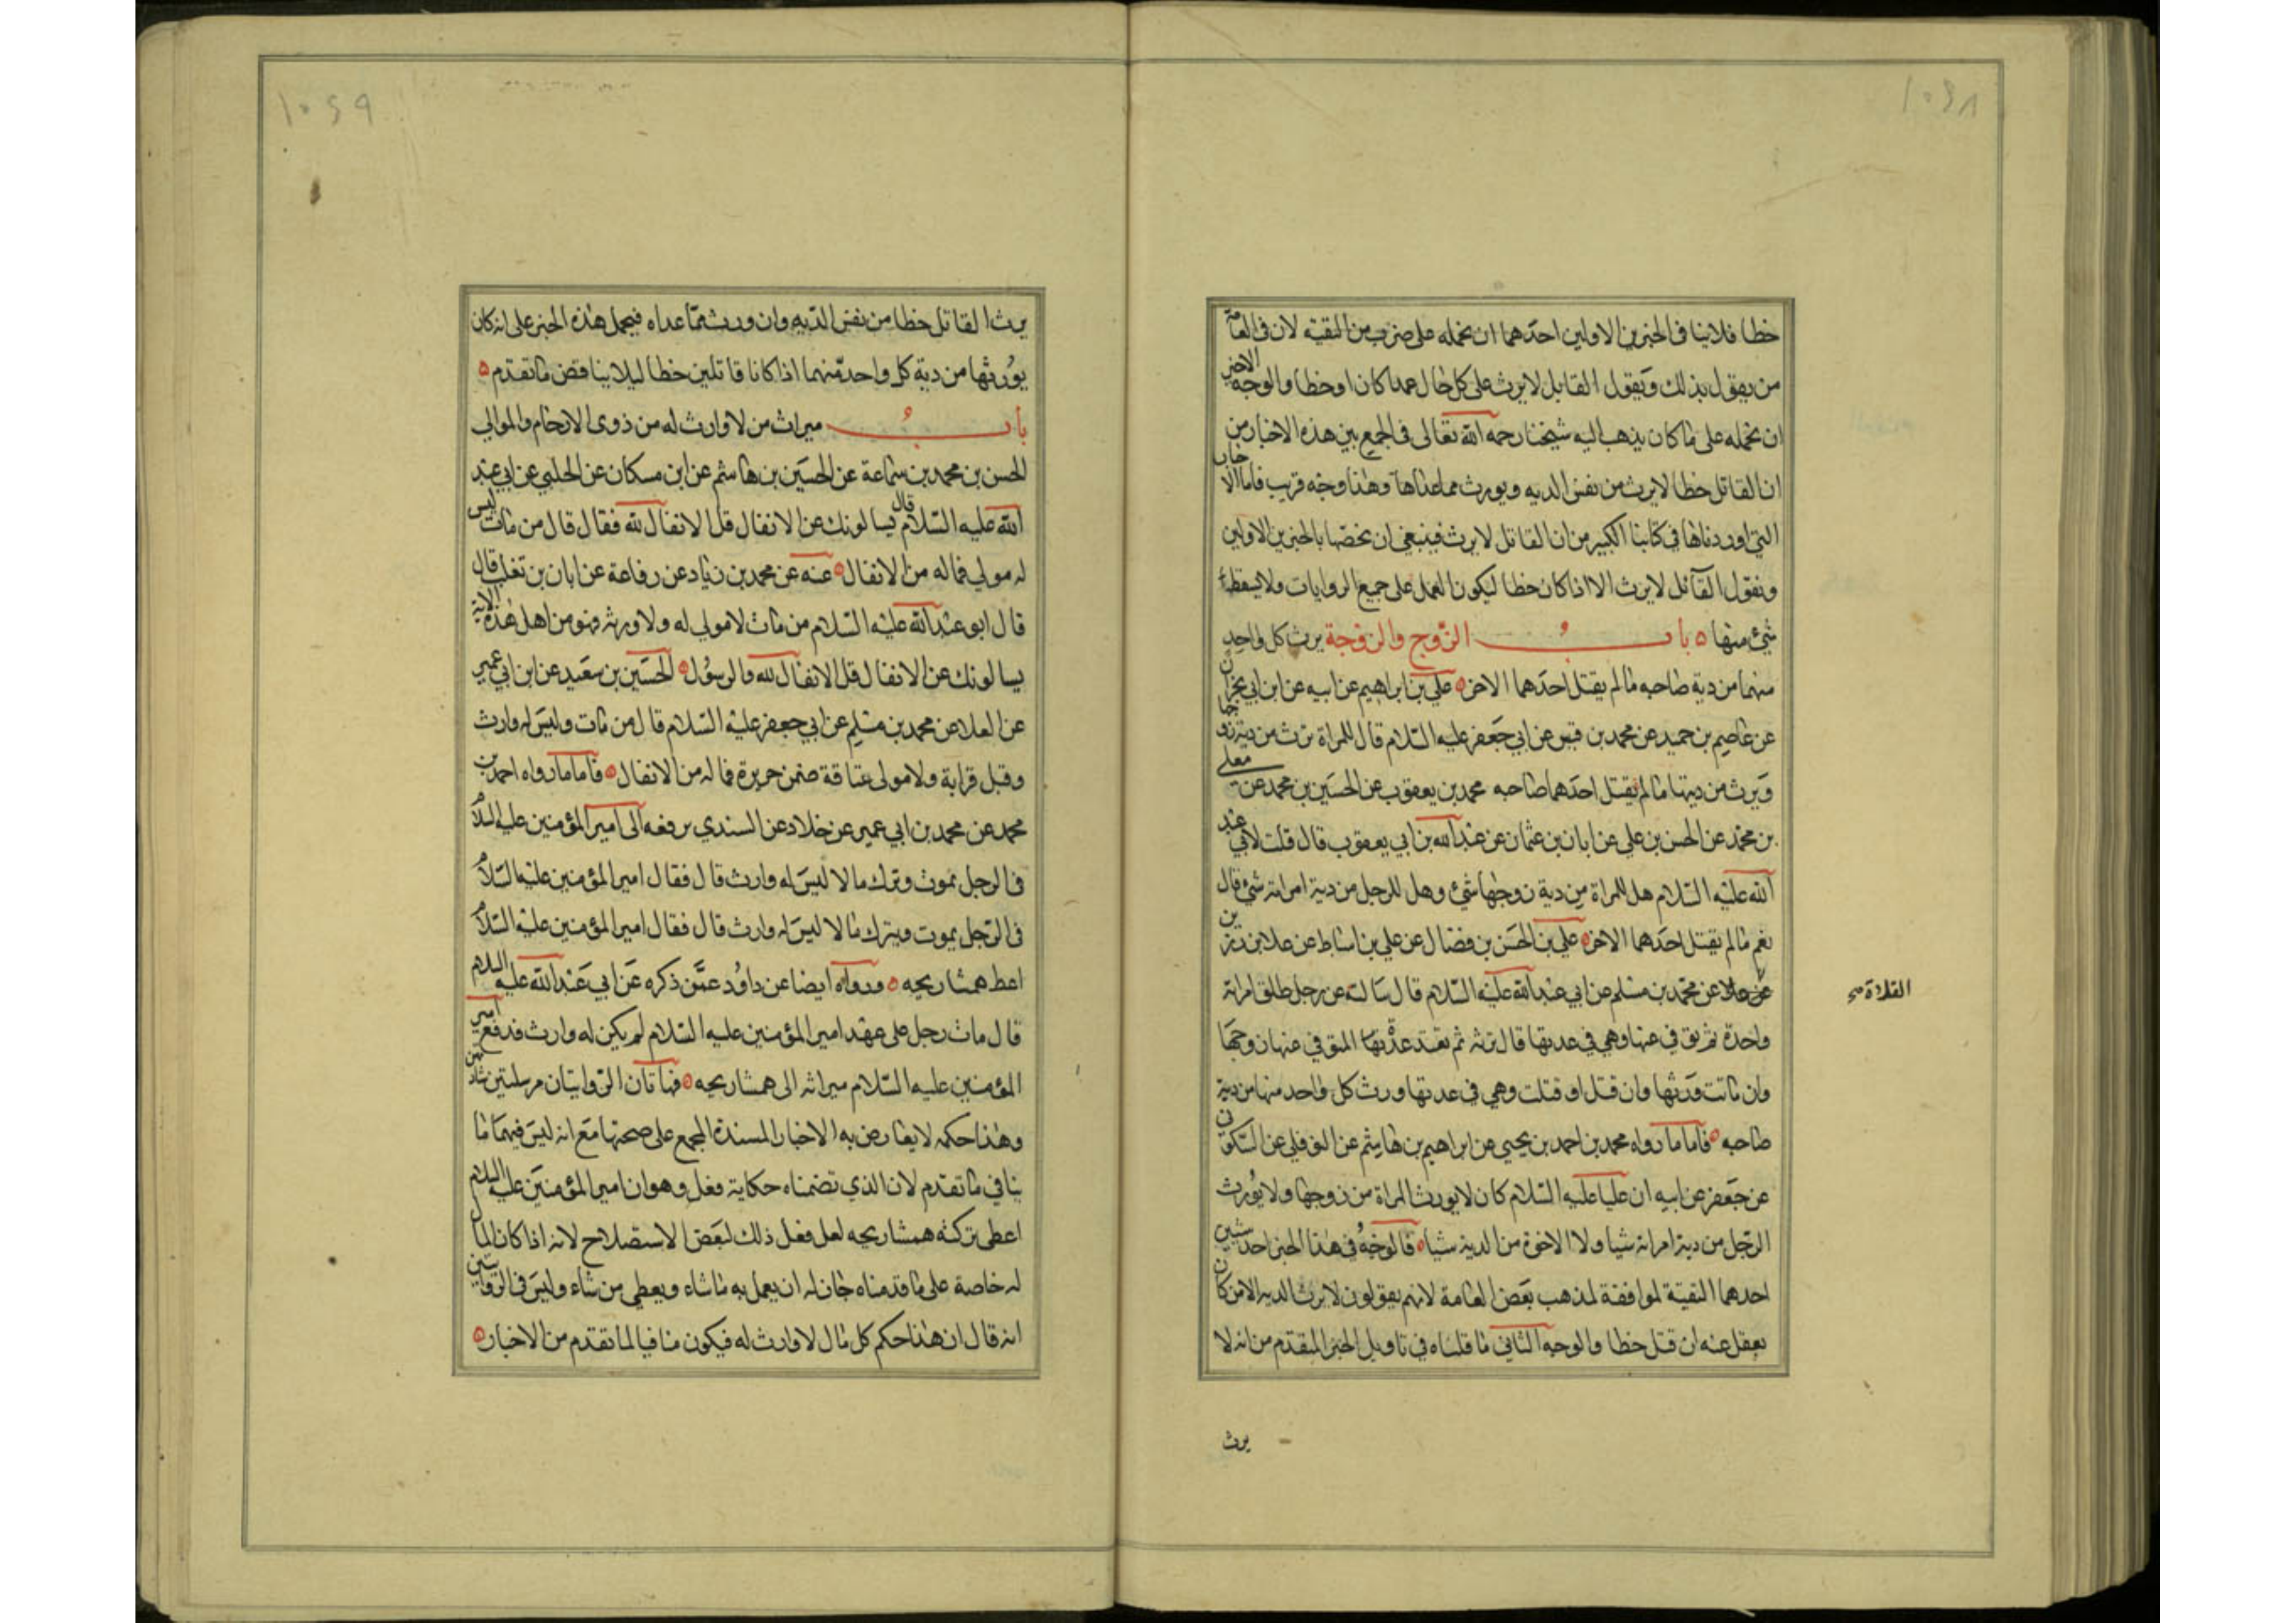 ١٠٤٨
خطا فلا ينافى الخبرين الاولين احدهما ان نحمله على ضرب من التقية لان فى العامة
من يقول بذلك ويقول القاتل لا يرث على كل حال عمدا كان او خطا والوجه الاخر
ان نحمله على ما كان يذهب اليه شيخنا رحمه الله تعالى فى الجمع بين هذه الاخبار من
ان القاتل خطا لا يرث من نفس الديه ويورث مما عداها وهذا وجه قريب فاما الاخبار
التي اوردناها في كتابنا الكبير من ان القاتل لا يرث فينبغي ان نخصها بالخبرين الاولين
ونقول القاتل لا يرث الا اذا كان خطا ليكون العمل على جميع الروايات ولا يسقط
شئ منها ٥ باب الزوج والزوجة يرث كل واحد
منهما من دية صاحبه ما لم يقتل احدهما الاخر ٥ علي بن ابراهيم عن ابيه عن ابن ابي نجران
عن عاصم بن حميد عن محمد بن قيس عن ابي جعفر عليه السلام قال للمراة ترث من دية زوجها
ويرث من ديتها ما لم يقتل احدهما صاحبه محمد بن يعقوب عن الحسين بن محمد عن معلى
بن محمد عن الحسن بن علي عن ابان بن عثمان عن عبد الله بن ابي يعقوب قال قلت لابي عبد
الله عليه السلام هل للمراة من دية زوجها شئ وهل للرجل من دية امراته شئ قال
نعم ما لم يقتل احدهما الاخر ٥ علي بن الحسن بن فضال عن علي بن اسباط عن علا بن رزين
القلا صح
عن محمد بن مسلم عن ابي عبد الله عليه السلام قال سالته عن رجل طلق امراته
واحدة ثم توفي عنها وهي في عدتها قال ترثه ثم تعتد عدة المتوفي عنها زوجها
وان ماتت ورثها وان قتل او قتلت وهي في عدتها ورث كل واحد منها من دية
صاحبه ٥ فاما ما رواه محمد بن احمد بن يحيي عن ابراهيم بن هاشم عن النوفلي عن السكوني
عن جعفر عن ابيه ان عليا عليه السلام كان لا يورث المراة من زوجها ولا يورث
الرجل من دية امراته شيا ولا الاخوة من الدية شيا ٥ فالوجه في هذا الخبر احد شيئين
احدهما التقية لموافقة لمذهب بعض العامة لانهم يقولون لا يرث الديه الا من كان
يعقل عنه ان قتل خطا والوجه الثاني ما قلناه في تاويل الخبر المتقدم من انه لا
يرث
١٠٤٩
يرث القاتل خطا من نفس الديه وان ورث مما عداه فيحمل هذه الخبر على انه كان
يورثها من دية كل واحد منهما اذا كانا قاتلين خطا ليلا يناقض ما تقدم ٥
باب ميراث من لا وارث له من ذوى الارحام والموالي
الحسن بن محمد بن سماعة عن الحسين بن هاشم عن ابن مسكان عن الحلبي عن ابي عبد
الله عليه السلام قال يسالونك عن الانفال قل الانفال لله فقال قال من مات ليس
له مولي فماله من الانفال ٥ عنه عن محمد بن زياد عن رفاعة عن ابان بن تغلب قال
قال ابو عبد الله عليه السلام من مات لا مولي له ولا ورثه فهو من اهل هذه الاية
يسالونك عن الانفال قل الانفال لله والرسول ٥ الحسين بن سعيد عن ابن ابي عمير
عن العلا عن محمد بن مسلم عن ابي جعفر عليه السلام قال من مات وليس له وارث
وقبل قرابة ولا مولى عتاقة ضمن جريرة فماله من الانفال ٥ فاما ما رواه احمد بن
محمد عن محمد بن ابي عمير عن خلاد عن السندي يرفعه الى امير المؤمنين عليه السلام
فى الرجل يموت وترك مالا ليس له وارث قال فقال امير المؤمنين عليه السلام
فى الرجل يموت ويترك مالا ليس له وارث قال فقال امير المؤمنين عليه السلام
اعط همشاريجه ٥ ورواه ايضا عن داود عمن ذكره عن ابي عبد الله عليه السلام
قال مات رجل على عهد امير المؤمنين عليه السلام لم يكن له وارث فدفع امير
المؤمنين عليه السلام ميراثه الى همشاريجه ٥ فهاتان الروايتان مرسلتين شاذتين
وهذا حكمه لا يعارض به الاخبار المسندة المجمع على صحتها مع انه ليس فيهما ما
ينافي ما تقدم لان الذي تضمناه حكاية فعل وهو ان امير المؤمنين عليه السلام
اعطى تركته همشاريجه لعل فعل ذلك لبعض الاستصلاح لانه اذا كان المال
له خاصة على ما قدمناه جاز له ان يعمل به ما شاء ويعطي من شاء وليس فى الروايتين
انه قال ان هذا حكم كل مال لا وارث له فيكون منافيا لما تقدم من الاخبار ٥